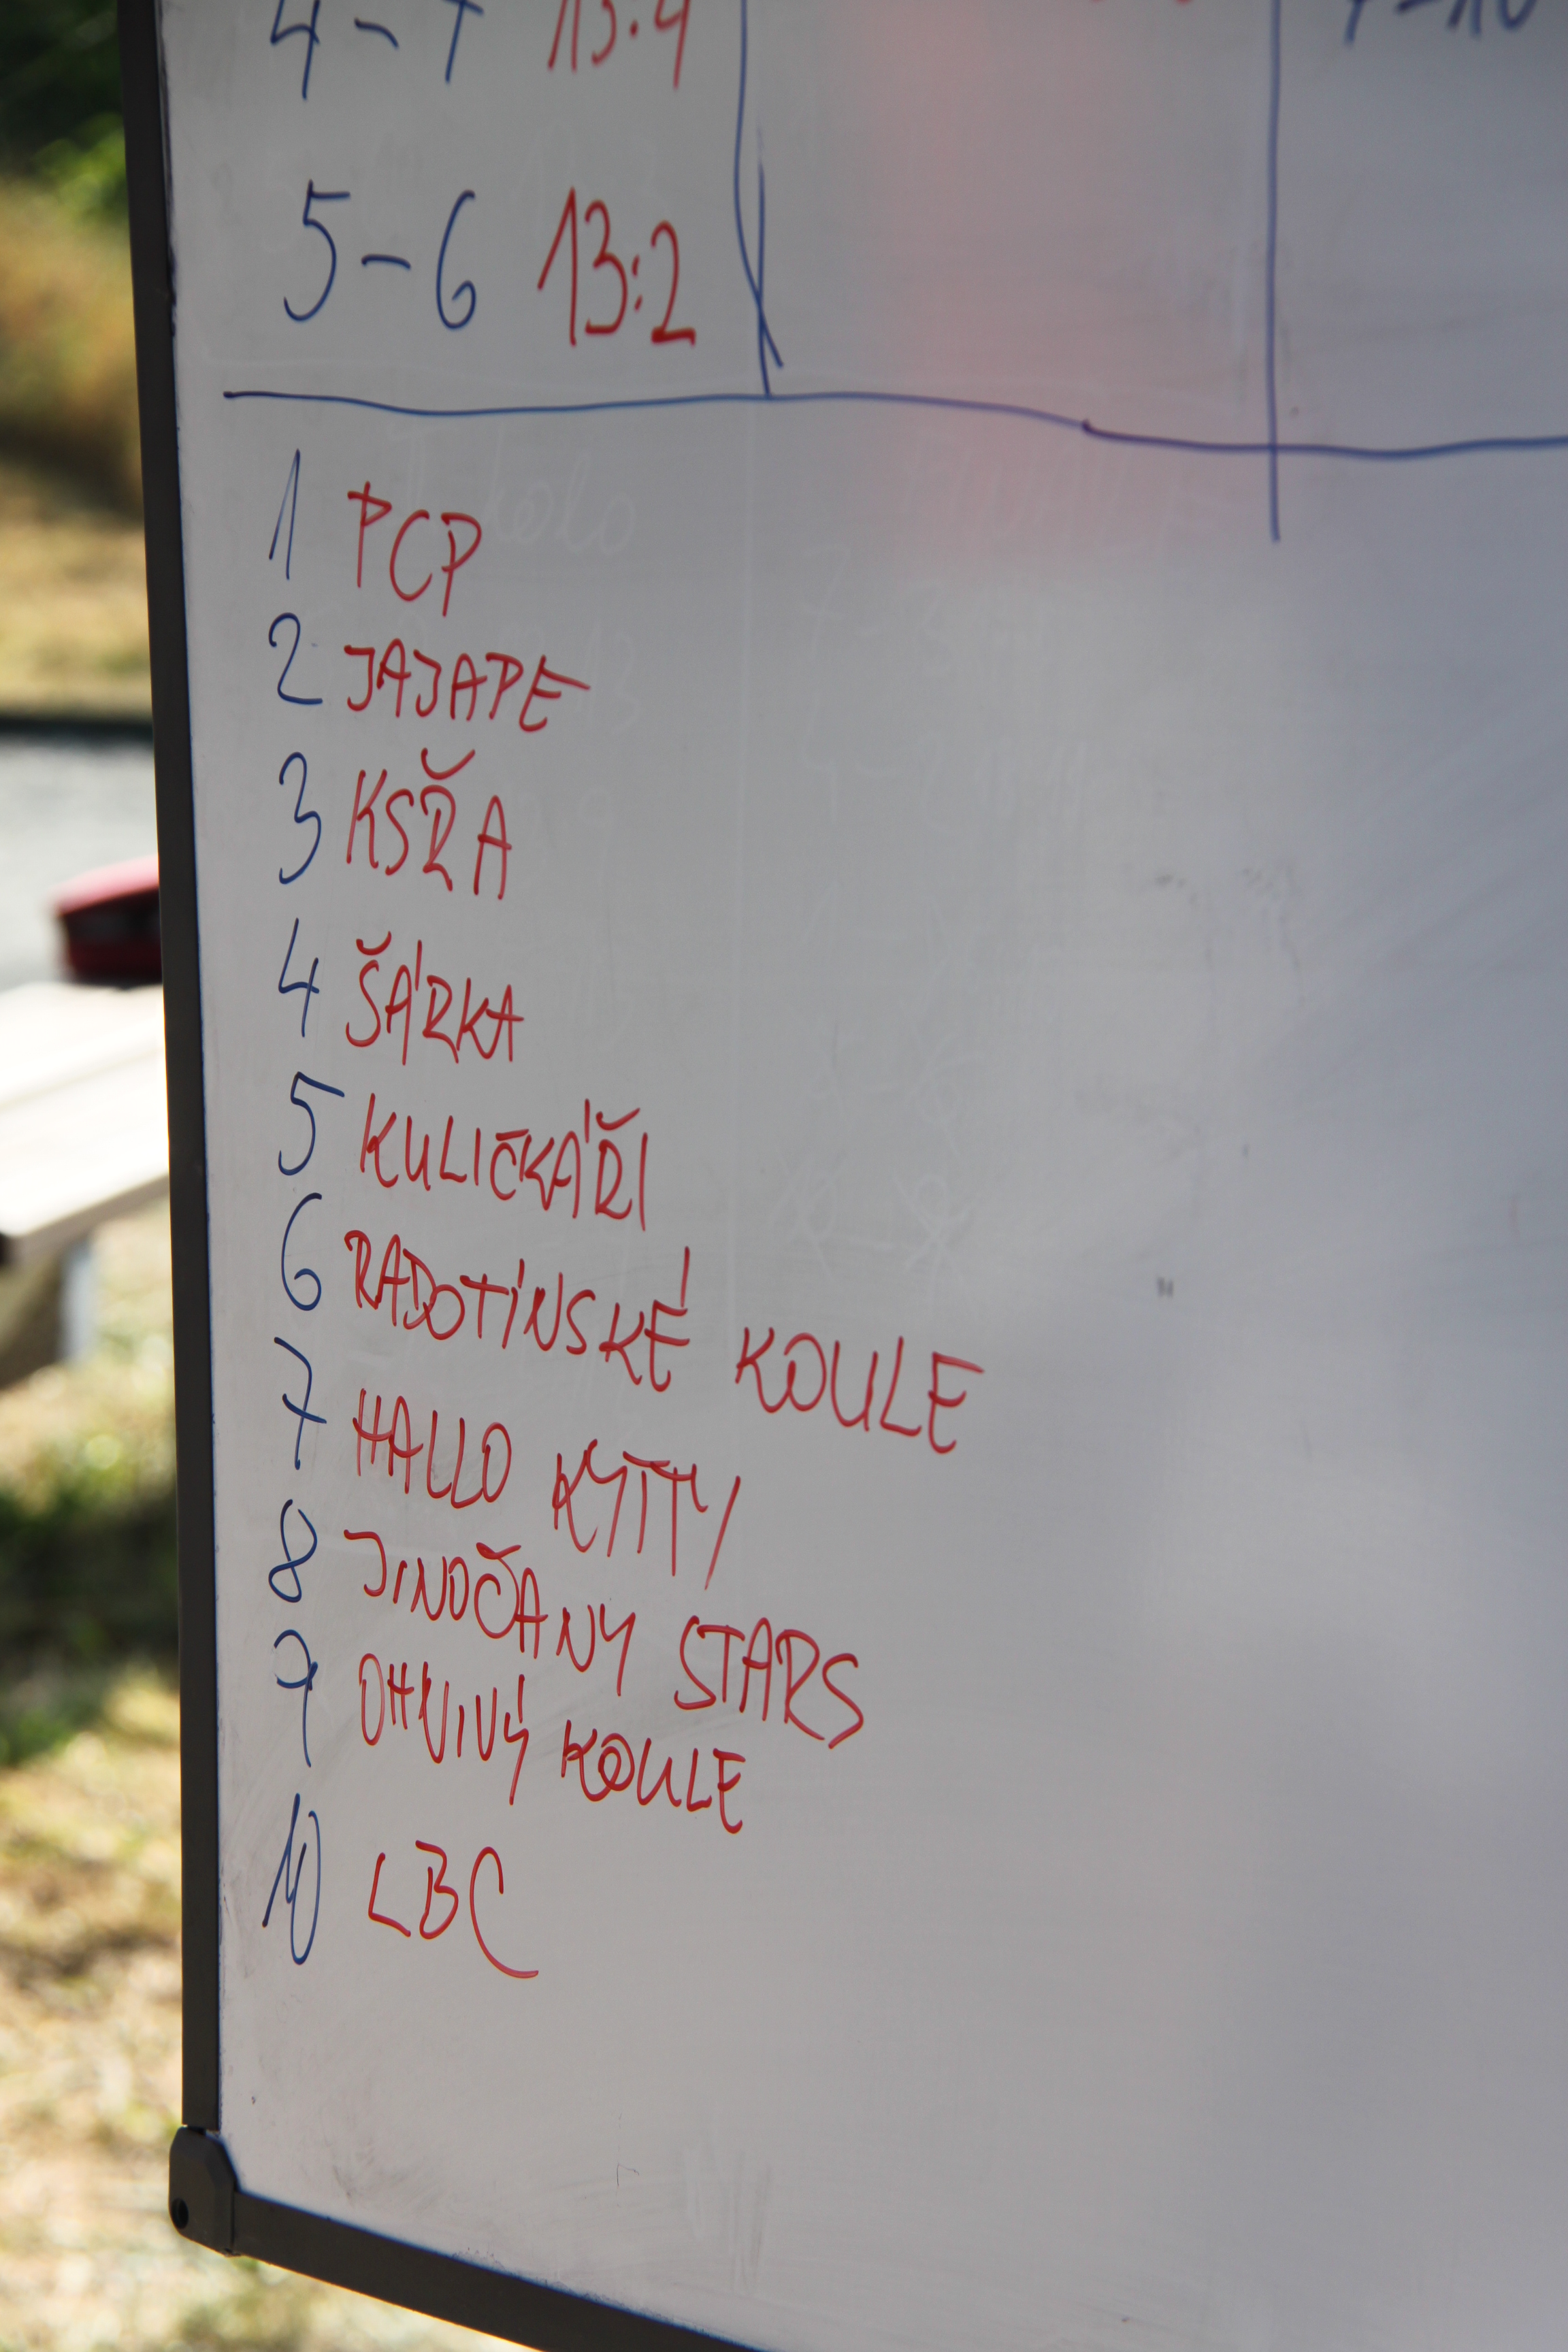 4-7 13:9
5-6 13:2
1 PCP
2 JAJAPE
3 KSŘA
4 ŠÁRKA
5 KULIČKÁŘI
6 RADOTÍNSKÉ KOULE
7 HALLO KYTTY
8 JINOČANY STARS
9 OHNIVÝ KOULE
10 LBC